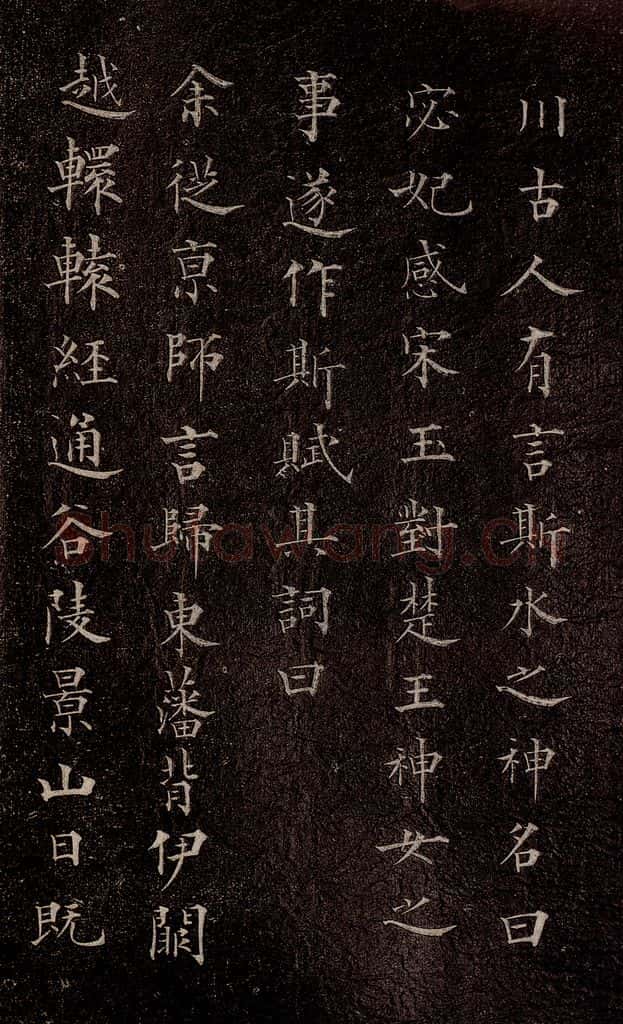 川古人有言斯水之神名曰
宓妃感宋玉對楚王神女之
事遂作斯賦其詞曰
余從京師言歸東藩背伊闕
越轘轅經通谷陵景山日既
shufawang.cn